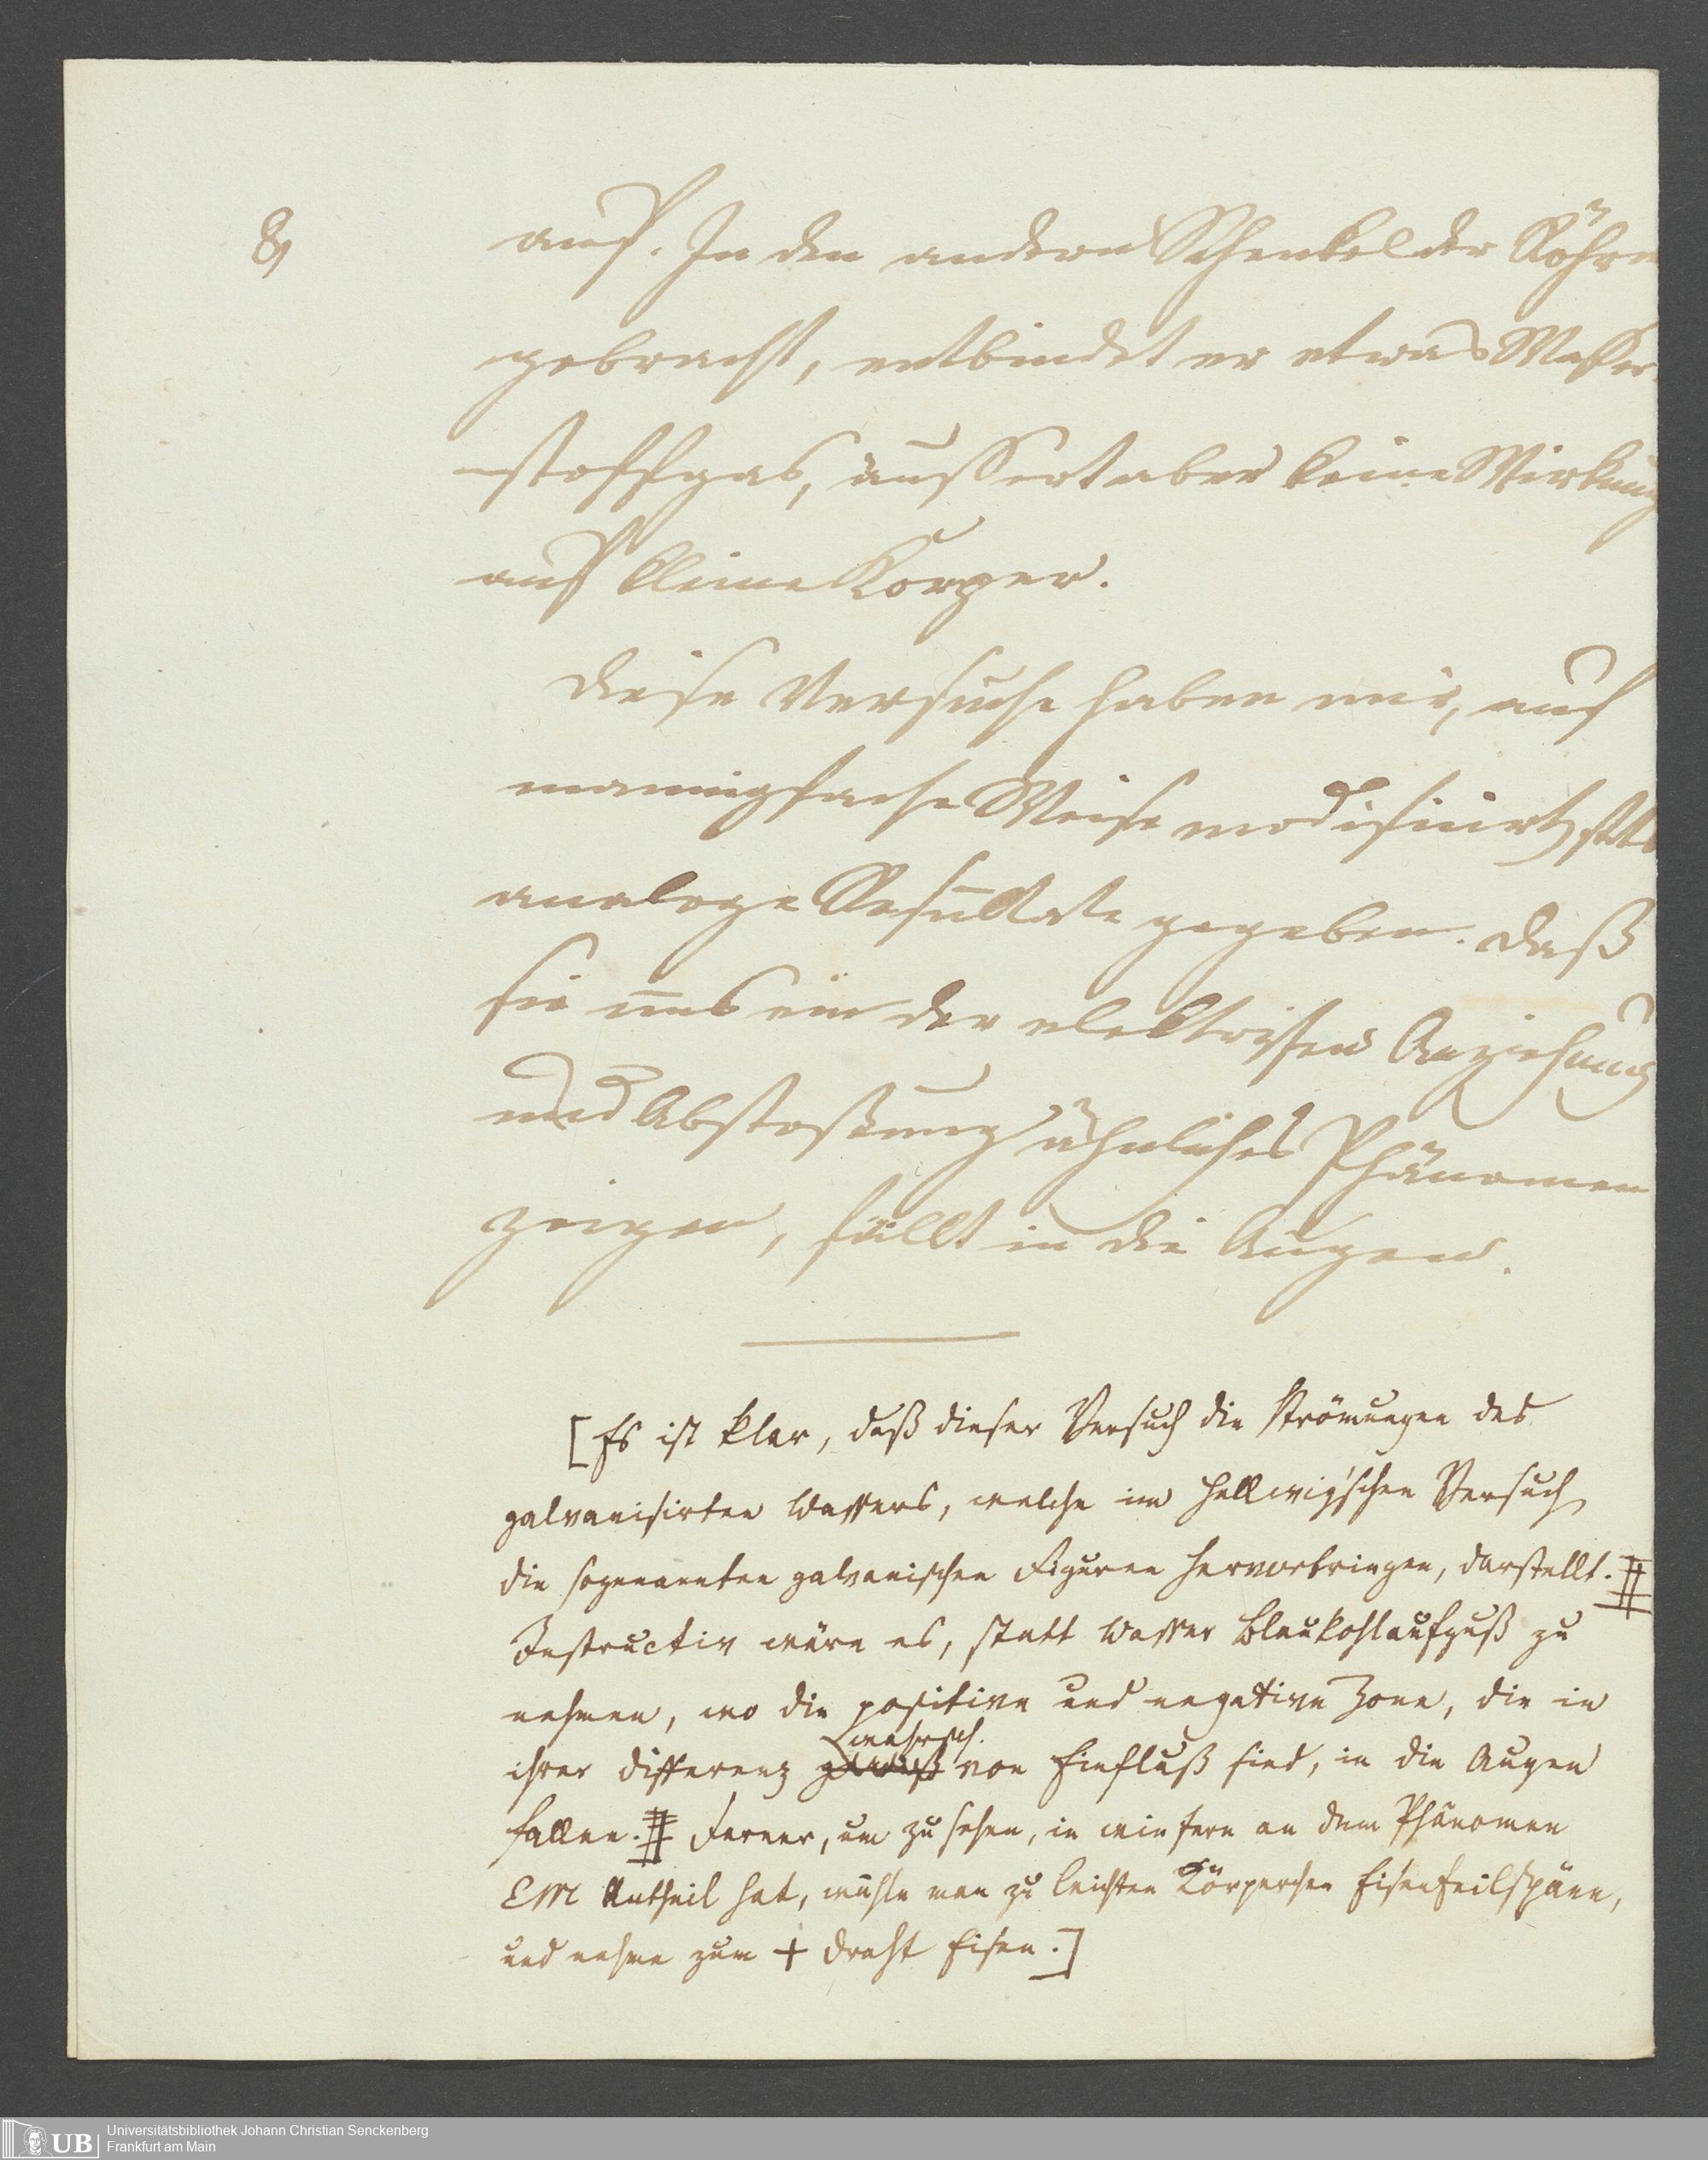 8,
auf. In den andern Schenkel der Röhre
gebracht, entbindet er etwas Wasser-
-stoffgas, äussert aber keine Wirkung
auf kleine Körper.
Diese Versuche haben mir, auf
mannigfache Weise modificirt, stets
analoge Resultate gegeben. Daß
sie uns ein der elektrischen Anziehung
und Abstoßung ähnliches Phänomen
zeigen, fällt in die Augen.
[Es ist klar, daß dieser Versuch die Strömungen des
galvanisirten Wassers, welche im Hellwig'schen Versuch
die sogenannten galvanischen Figuren hervorbringen, darstellt. #
Instructiv wäre es, statt Wasser Blaukohlaufguß zu
nehmen, wo die positive und negative Zone, die in
wahrsch.
ihrer Differenz gewiß von Einfluß sind, in die Augen
fallen. # Ferner, um zu sehen, in wie fern an dem Phänomen
EM Antheil hat, wähle man zu leichten Körperchen Eisenfeilspäne,
und nehme zum + Draht Eisen.]
UB
Universitätsbibliothek Johann Christian Senckenberg
Frankfurt am Main